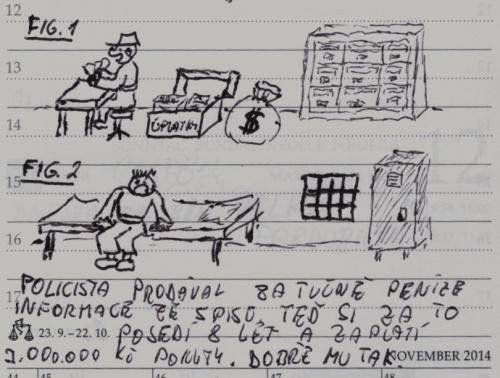 12
FIG. 1
13
ÚPLATKY
$
14
FIG. 2
15
16
POLICISTA PRODÁVAL ZA TUČNÉ PENÍZE
17
INFORMACE ZE SPISŮ, TEĎ SI ZA TO
23. 9. – 22. 10. POSEDÍ 8 LET A ZAPLATÍ
2.000.000 KČ POKUTY. DOBŘE MU TAK. NOVEMBER 2014
44 45 46 47 48